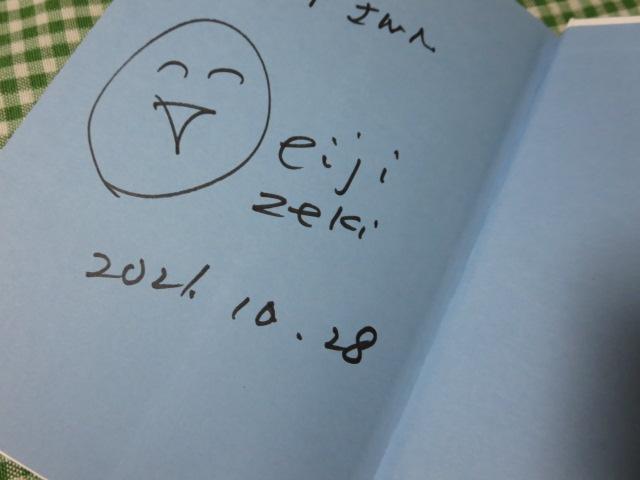 さんへ
eiji
zeki
2021. 10. 28